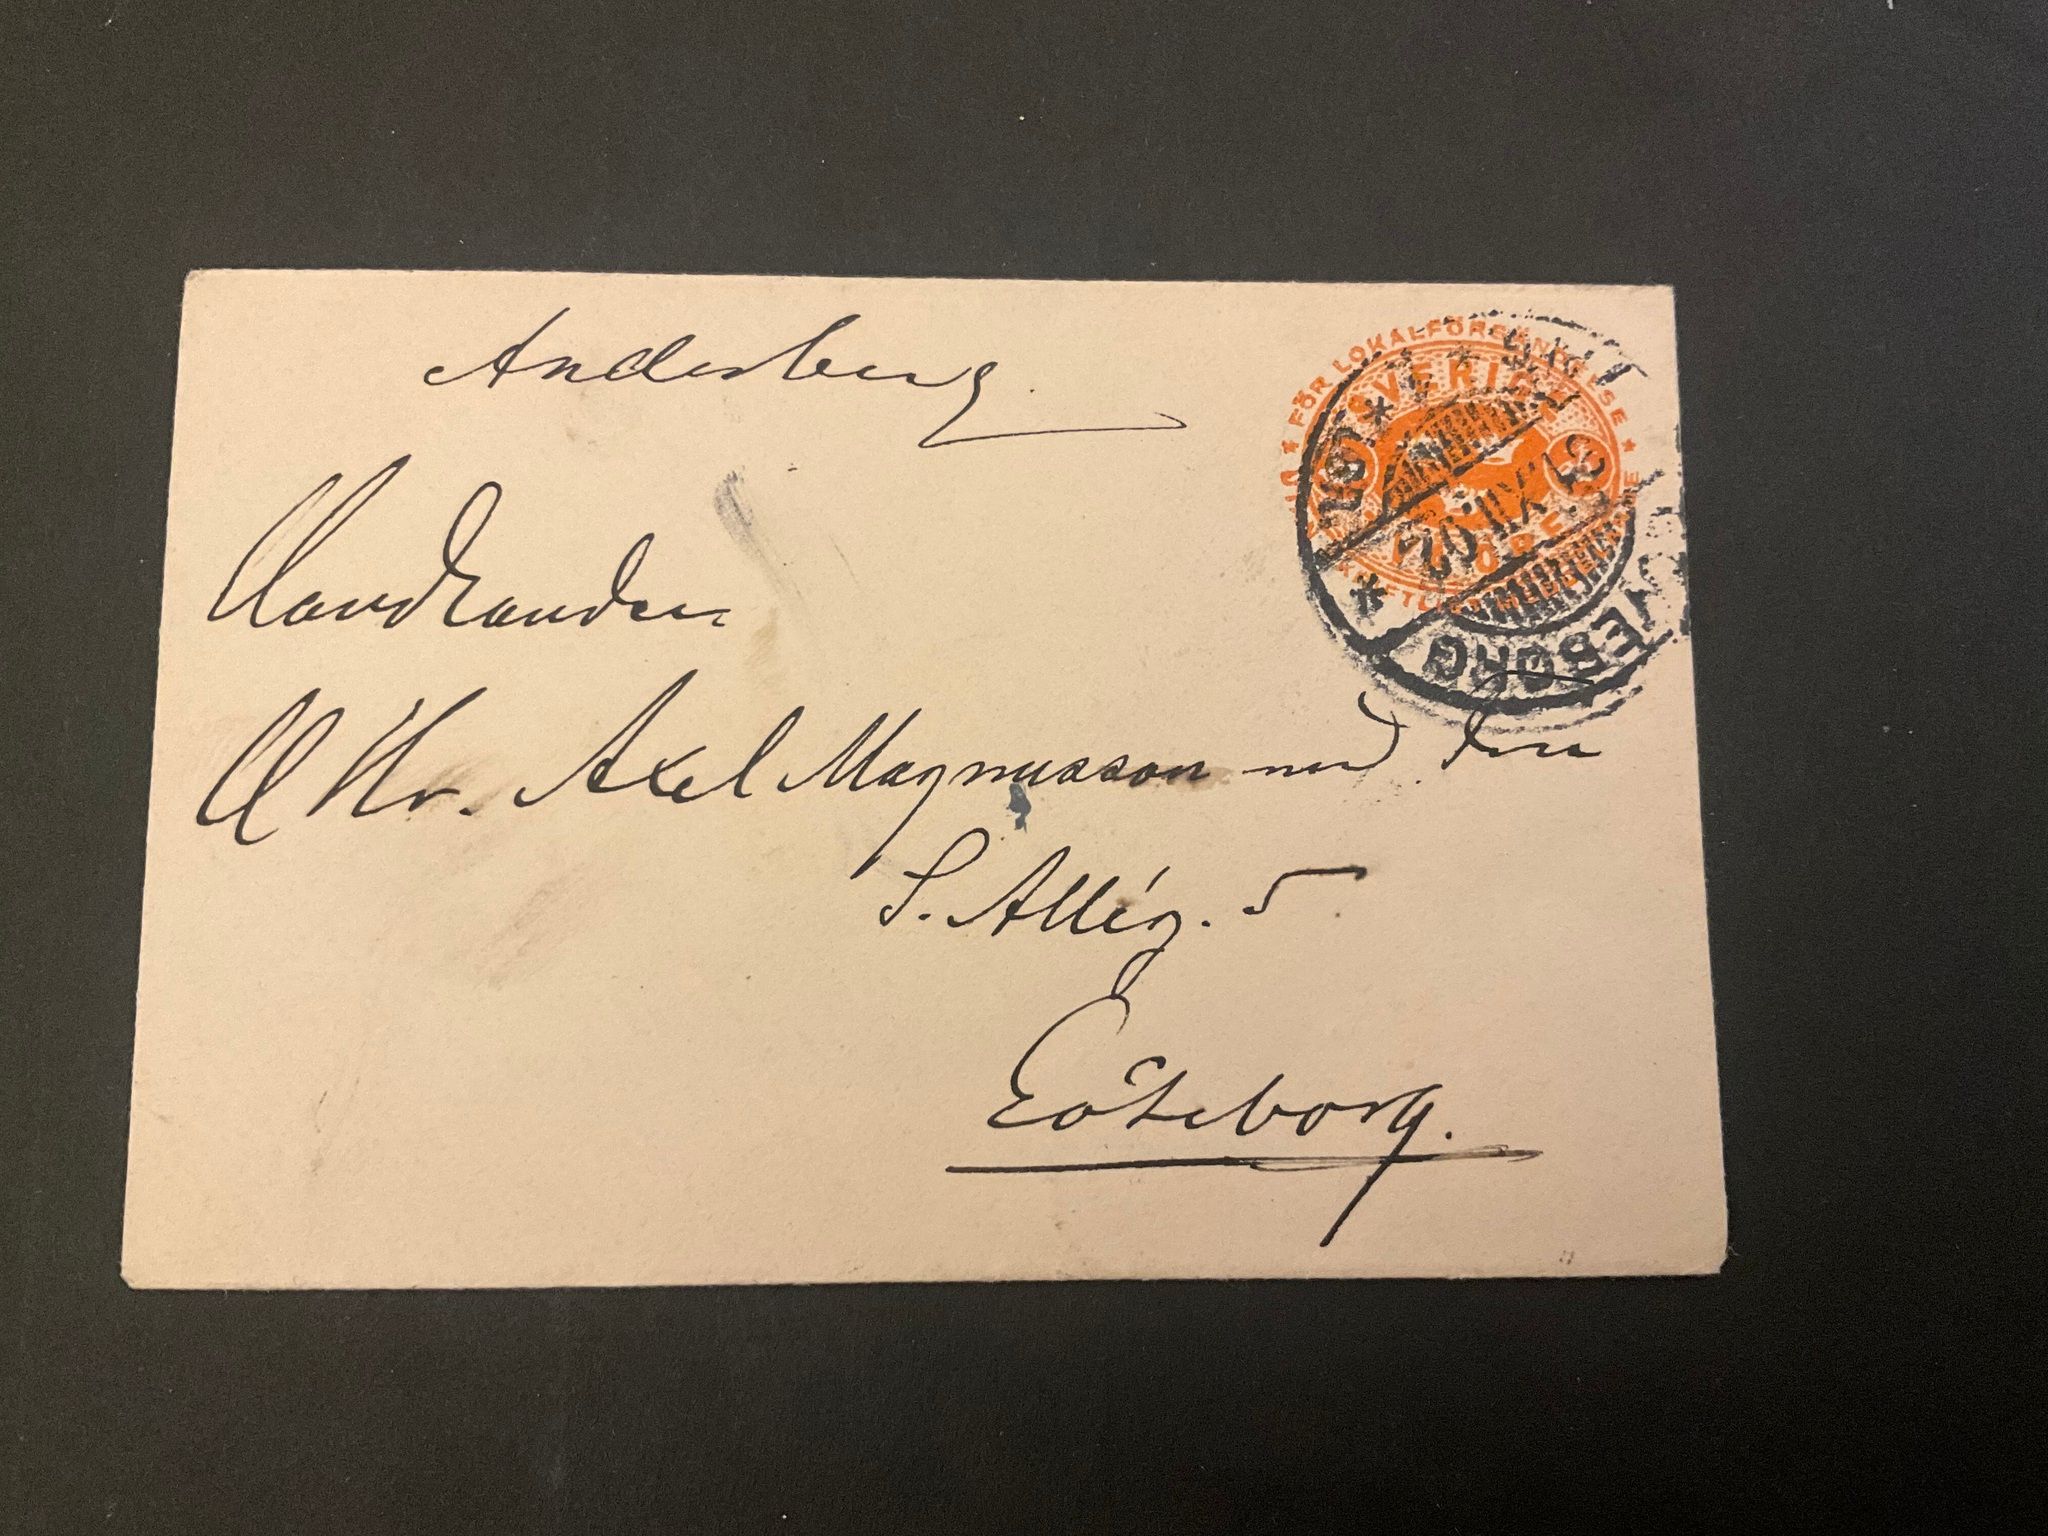 Anderberg
Handlanden
Hr. Axel Magnusson med Fru
S. Allég. 5
Göteborg.
FÖR LOKALFÖRSÄNDELSE
SVERIGE
ÖRE
GÖTEBORG